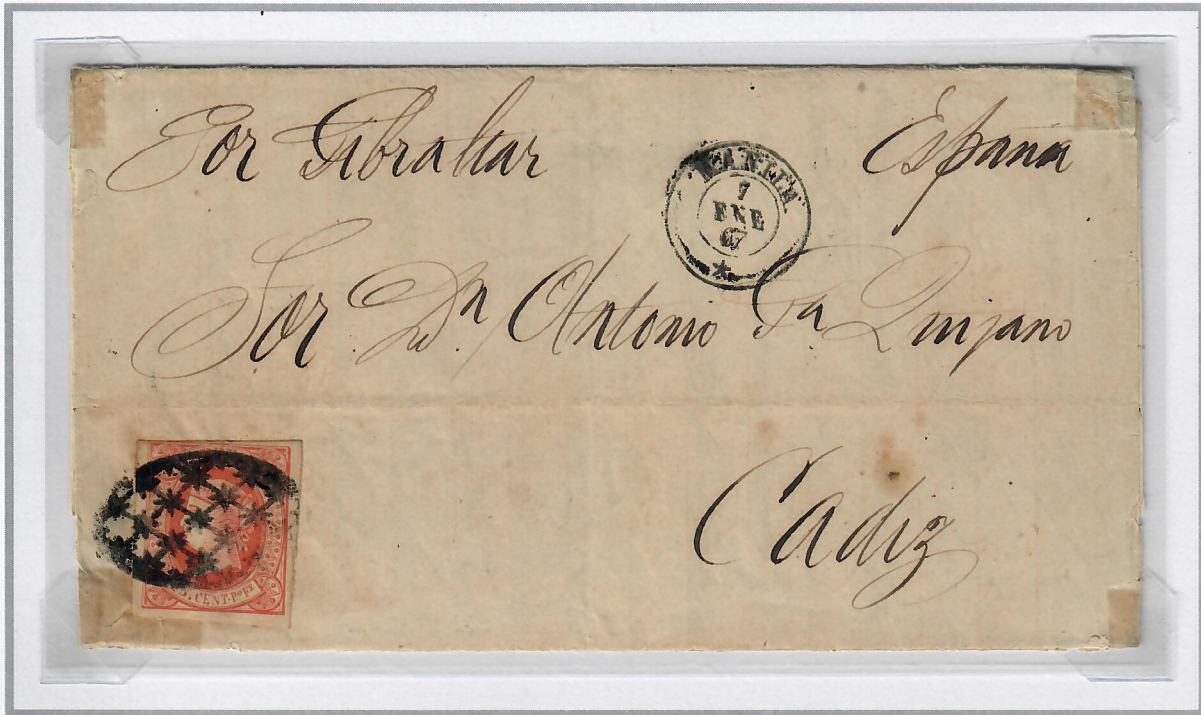 Por Gibraltar España
MANILA
7
ENE
67
Sor Dn Antonio Fa Quijano
Cadiz
CENT. Po Fe